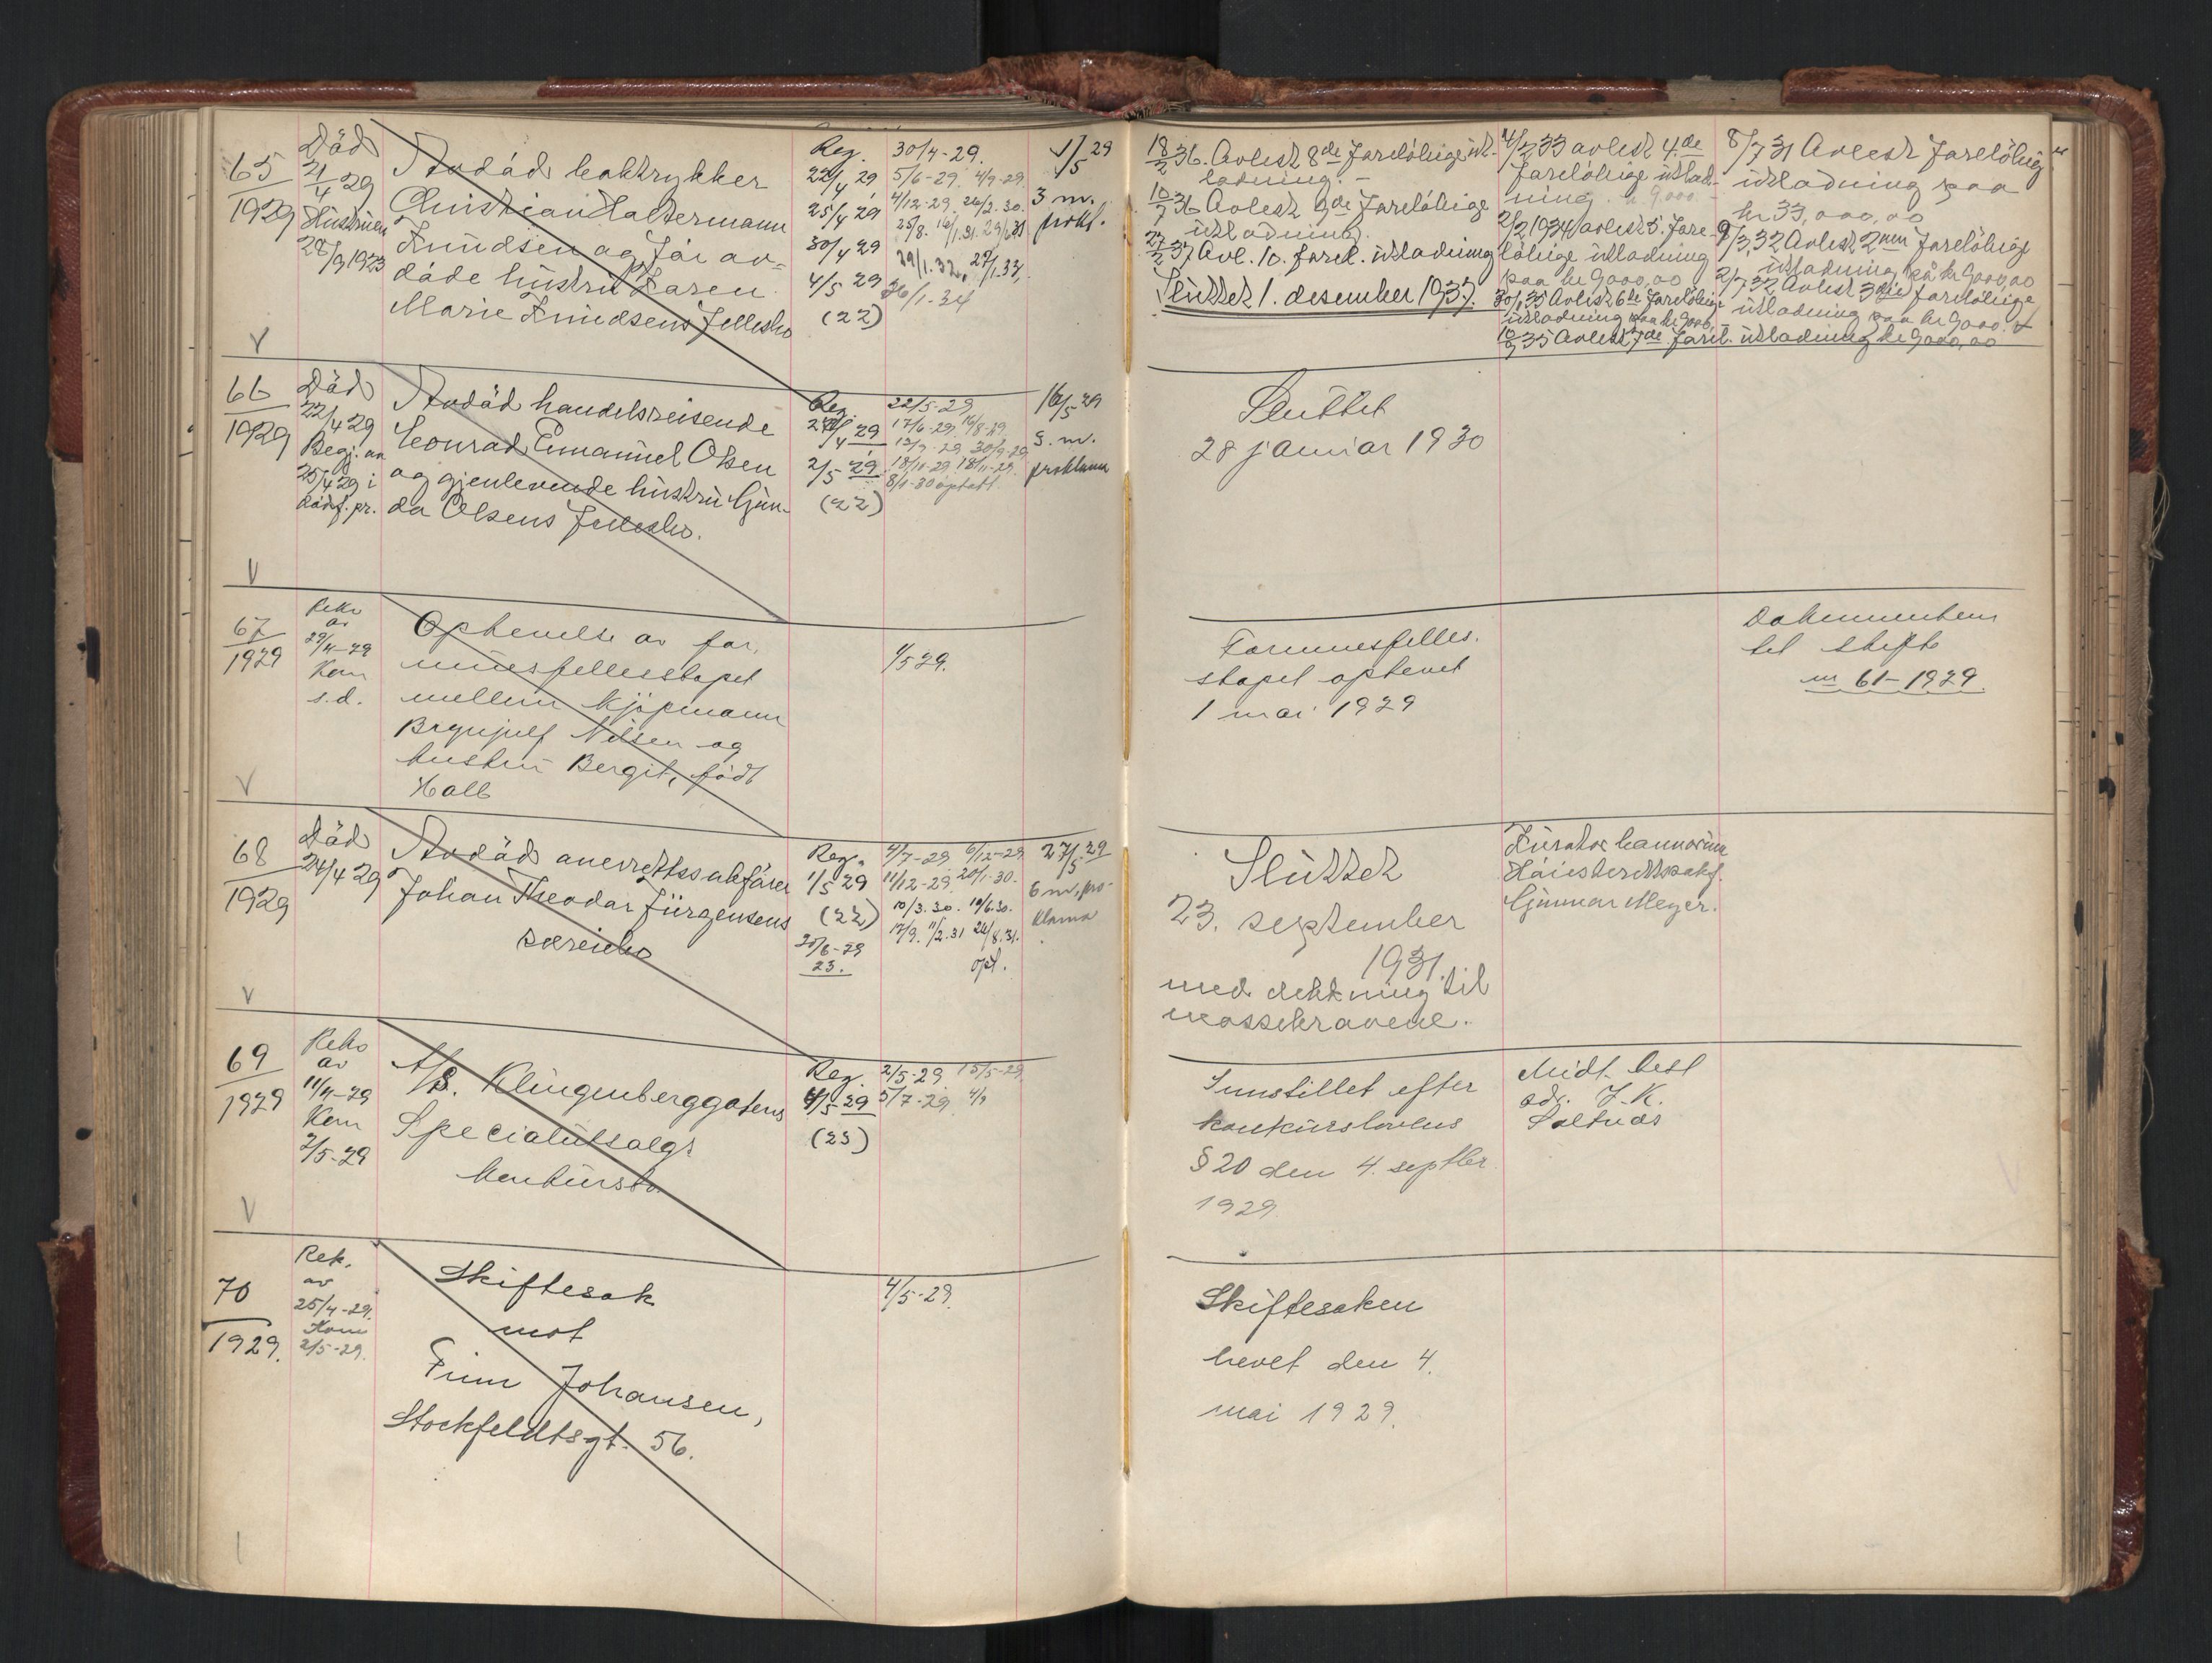 65
1929
Död
21/4 29
Hustruen
28/9 1923
Avdöd boktrykker
Christian Haltermann
Knudsen og før av-
døde hustru Karen
Marie Knudsens Fellesbo
Reg.
22/4 29
25/4 29
30/4 29
4/5 29
(22)
30/4-29.
5/6-29. 4/9-29.
4/12-29. 26/2.30.
29/1.32, 27/1.33,
26/1-34
1/5 29
3 m.
prokl.
18/2 36. Avlest 8de foreløbige ut-
lodning.-
10/7 36 Avlest 9de foreløbige
utlodning.
27/2 37 Avl. 10. forel. utlodning
Sluttet 1. desember 1937.
4/2 33 avlest 4.de
foreløbige utlod-
ning. kr 9,000.-
2/2 1934 avlest 5. fore-
løbige utlodning
paa kr 9000,00
30/1 35 Avlest 6te foreløbige
utlodning paa kr 9000,-
10/9 35 Avlest 7de forel. utlodning kr 9000,00
8/7 31 Avlest foreløbig
utlodning paa
kr 33,000,00
9/3 32 Avlest 2nen foreløbige
utlodning på kr 9000,00
2/7 32 Avlest 3dje foreløbige
utlodning paa kr 9000.
V
66
1929
Död
22/4 29
Begj. av
25/4 29 i
dødsf. pr.
Avdöd handelsreisende
Leonrad Emanuel Olsen
og gjenlevende hustru Gun-
da Olsens Fellesbo.
Reg.
2/5 29
(22)
22/5-29
17/6-29. 16/8-29
13/9-29 30/9-29
18/10-29. 18/11-29.
8/1-30 optatt
16/5 29
3. m.
proklama
Sluttet
28 januar 1930
V
67
1929
Rekv
av
29/4-29
Kom
s.d.
Ophevelse av for-
muesfellesskapet
mellem kjøpmann
Brynjulf Nilsen og
hustru Bergit, født
Hall
1/5 29.
Formuesfelles-
skapet ophevet
1 mai 1929
Dokumenterne
til skifte
nr 61-1929
V
68
1929
Död
24/4 29
Avdöd overrettssakfører
Johan Theodor Jürgensens
særeiebo
Reg.
1/5 29
(22)
20/6-29
23.
4/7-29 6/12-29
11/12-29. 20/1-30.
10/3.30. 19/6.30.
17/9. 11/2.31 24/8.31.
opt.
27/5 29
6 m. pro-
klama
Sluttet
23. september
1931.
med dekning til
massekravene.
Kurator bonnorum
Høiesterettssakf.
Gunnar Meyer.
V
69
1929
Rekv
av
11/4-29
Kom
2/5-29
A/S. Klingenberggatens
Specialutsalgs
konkursbo
Reg.
4/5 29
(23)
2/5-29. 15/5-29
5/7-29 4/9
Innstillet efter
konkurslovens
§ 20 den 4. septbr.
1929
Midt. best
adv. J. K.
Saltnes
V
70
1929.
Rek.
av
25/4-29.
Kom
2/5-29.
Skiftesak
mot
Finn Johansen,
Stockfeldtsgt. 56.
4/5-29.
Skiftesaken
hevet den 4.
mai 1929.